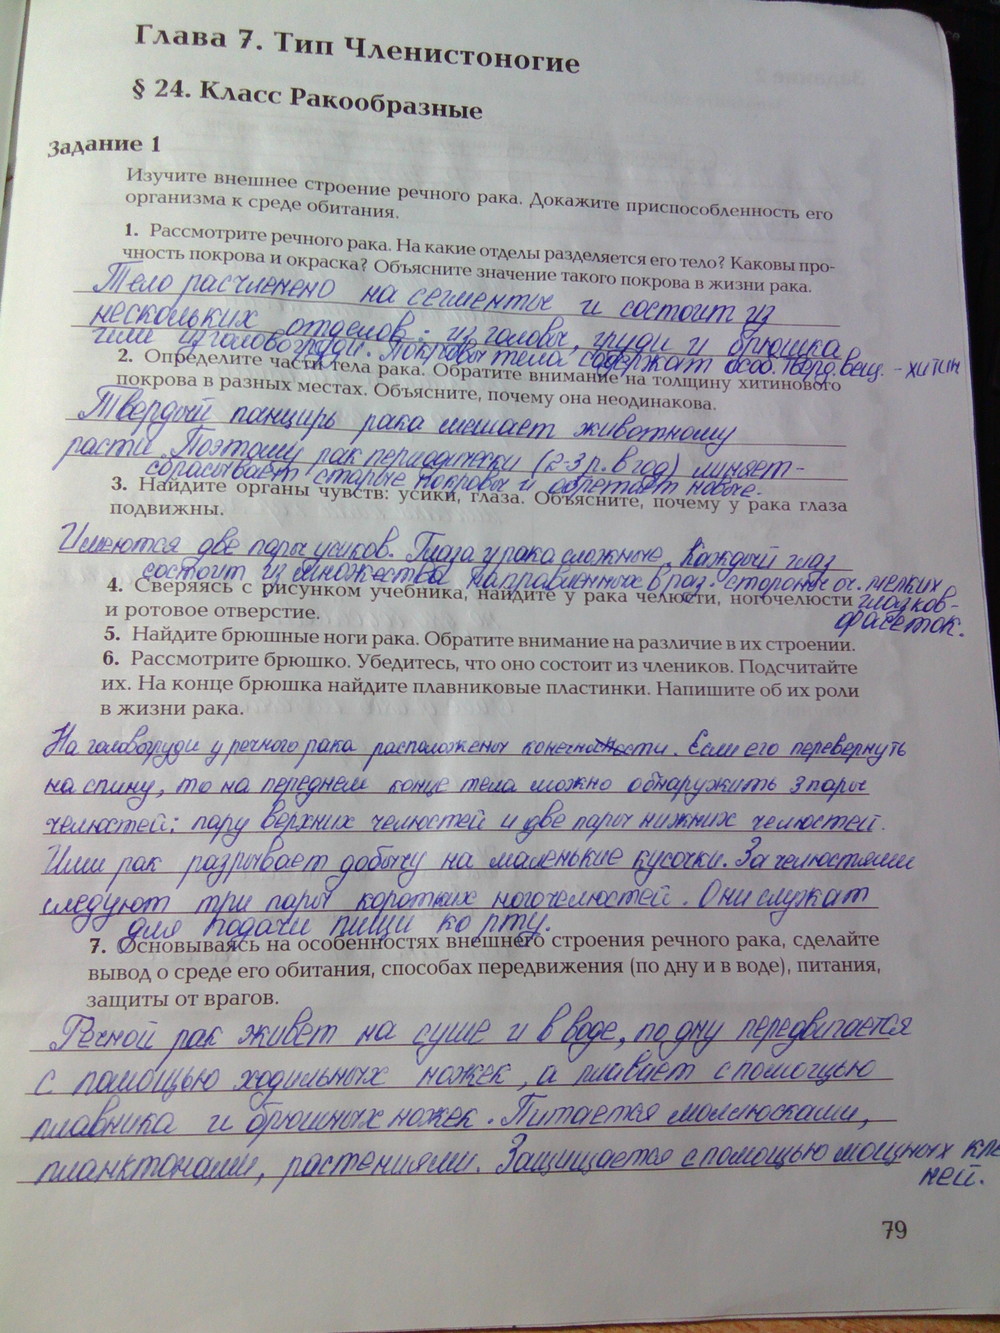 Глава 7. Тип Членистоногие
§ 24. Класс Ракообразные
Задание 1
Изучите внешнее строение речного рака. Докажите приспособленность его
организма к среде обитания.
1. Рассмотрите речного рака. На какие отделы разделяется его тело? Каковы про-
чность покрова и окраска? Объясните значение такого покрова в жизни рака.
Тело расчленено на сегменты и состоит из
нескольких отделов: из головы, груди и брюшка
или из головогруди. Покровы тела содержат особ. тверд. вещ. - хитин
2. Определите части тела рака. Обратите внимание на толщину хитинового
покрова в разных местах. Объясните, почему она неодинакова.
Твердый панцирь рака мешает животному
расти. Поэтому рак периодически (2-3 р. в год) линяет-
сбрасывает старые покровы и обретает новые.
3. Найдите органы чувств: усики, глаза. Объясните, почему у рака глаза
подвижны.
Имеются две пары усиков. Глаза у рака сложные, каждый глаз
состоит из множества направленных в раз. стороны оч. мелких
4. Сверяясь с рисунком учебника, найдите у рака челюсти, ногочелюсти глазков-
и ротовое отверстие. фасеток.
5. Найдите брюшные ноги рака. Обратите внимание на различие в их строении.
6. Рассмотрите брюшко. Убедитесь, что оно состоит из члеников. Подсчитайте
их. На конце брюшка найдите плавниковые пластинки. Напишите об их роли
в жизни рака.
На головогруди у речного рака расположены конечности. Если его перевернуть
на спину, то на переднем конце тела можно обнаружить 3 пары
челюстей: пару верхних челюстей и две пары нижних челюстей.
Ими рак разрывает добычу на маленькие кусочки. За челюстями
следуют три пары коротких ногочелюстей. Они служат
для подачи пищи ко рту.
7. Основываясь на особенностях внешнего строения речного рака, сделайте
вывод о среде его обитания, способах передвижения (по дну и в воде), питания,
защиты от врагов.
Речной рак живет на суше и в воде, по дну передвигается
с помощью ходильных ножек, а плавает с помощью
плавника и брюшных ножек. Питается моллюсками,
планктонами, растениями. Защищается с помощью мощных кле
ней.
79